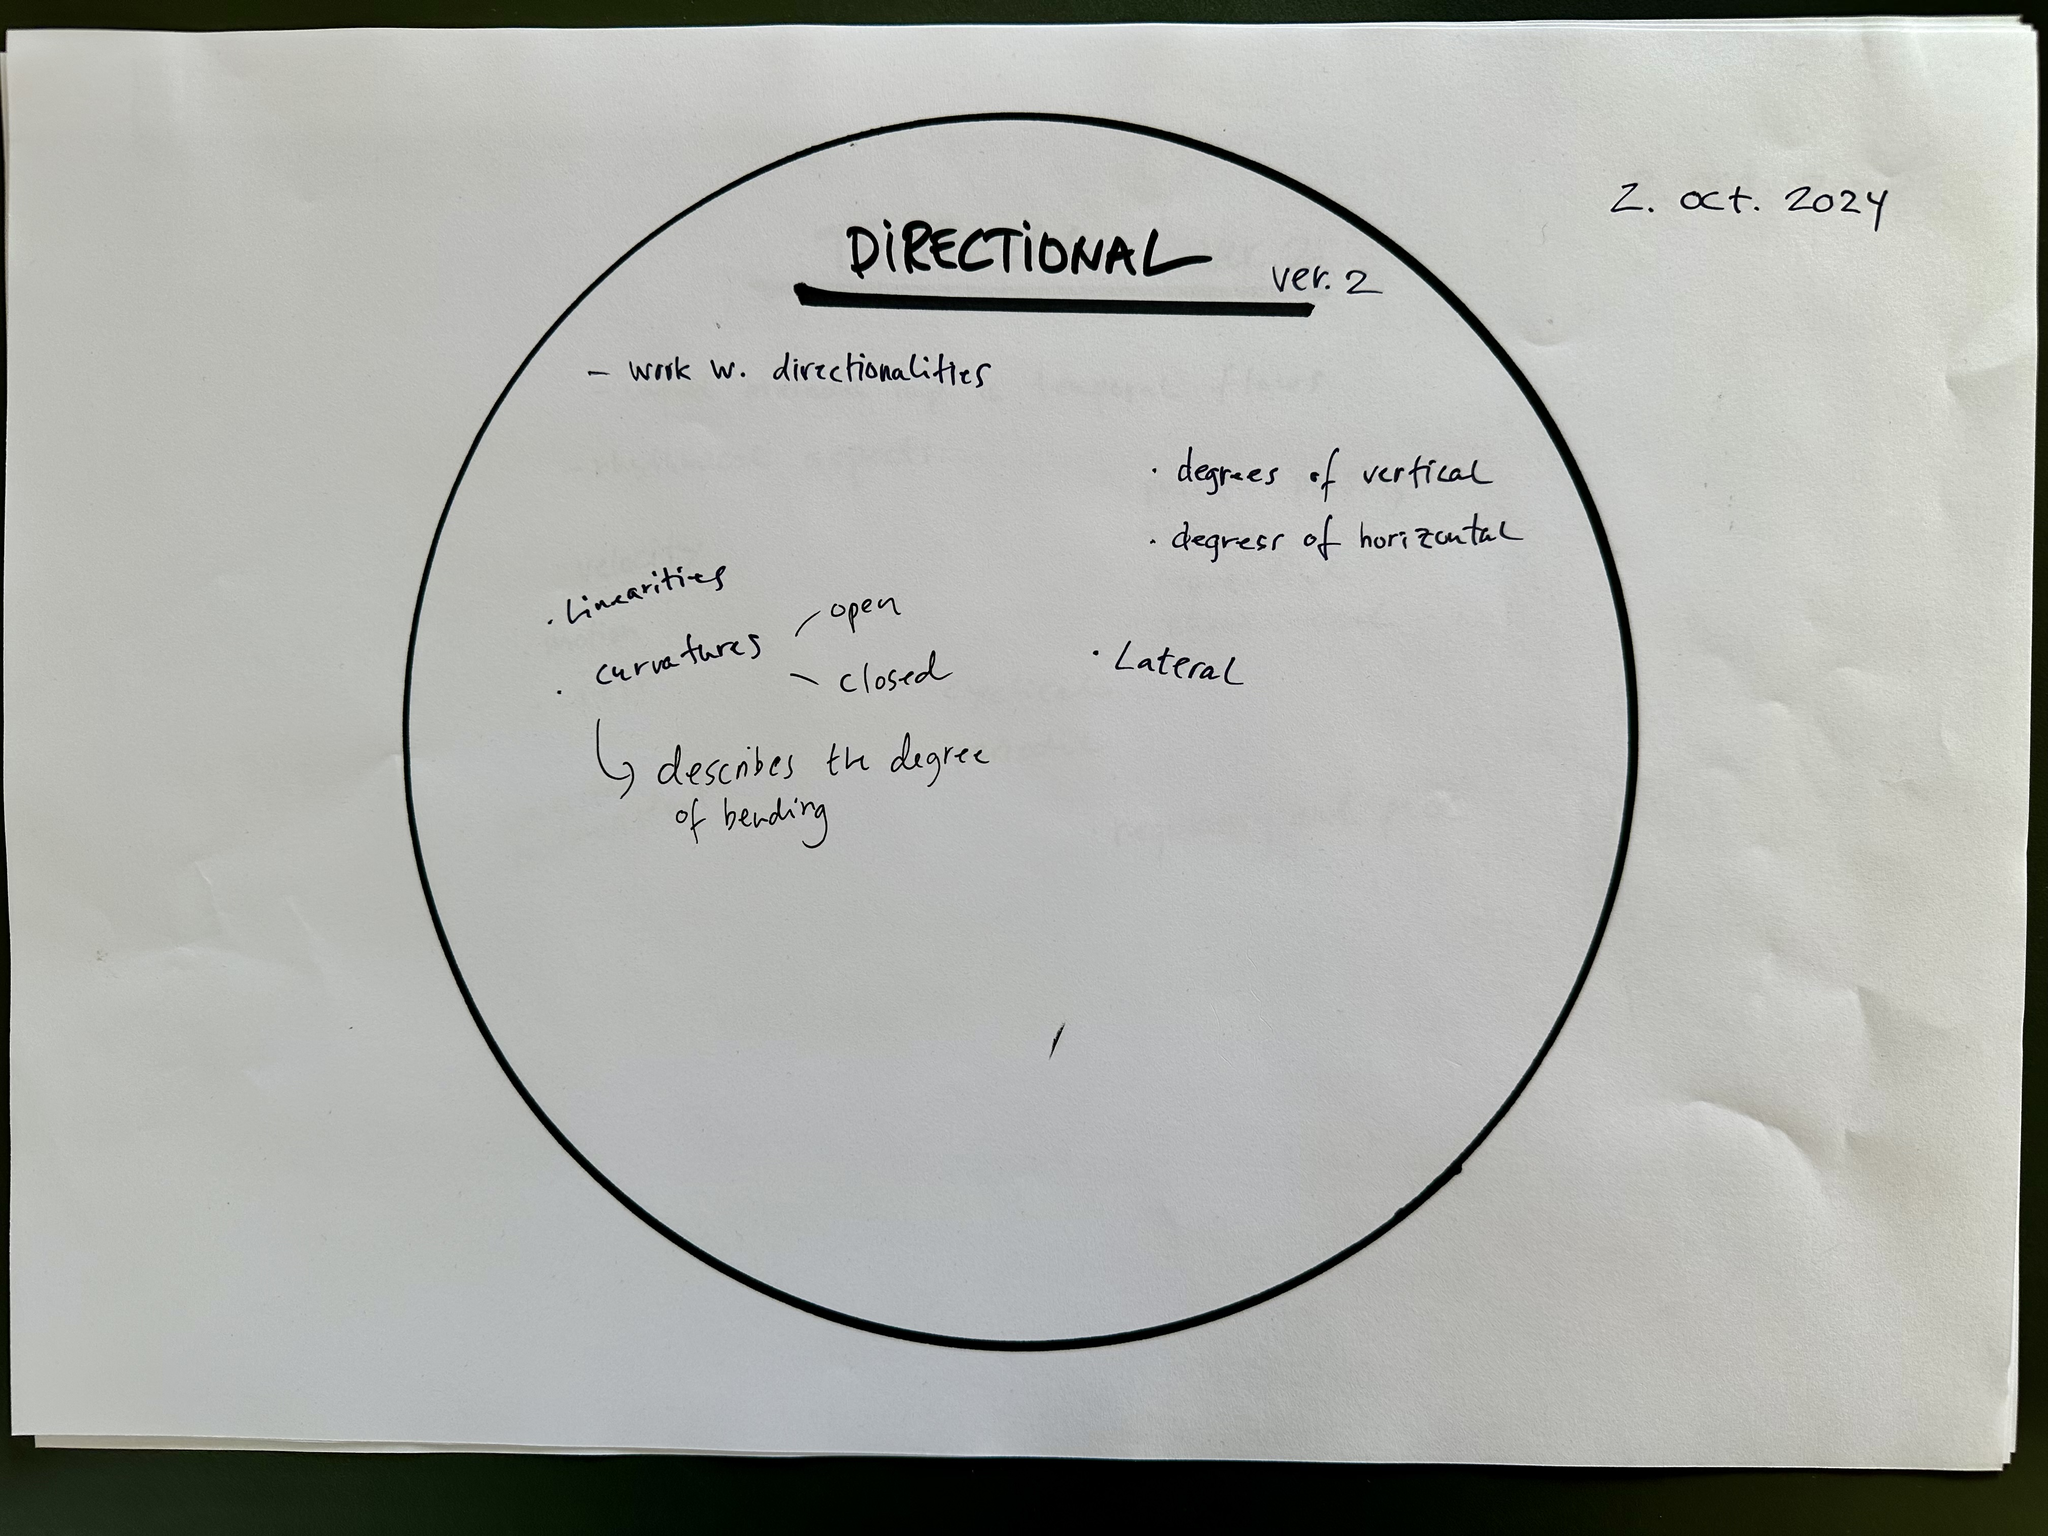 2. oct. 2024
DiRECTiONAL ver. 2
– work w. directionalities
· degrees of vertical
· degress of horizontal
· Linearities
· curvatures
open
closed
describes the degree
of bending
· Lateral